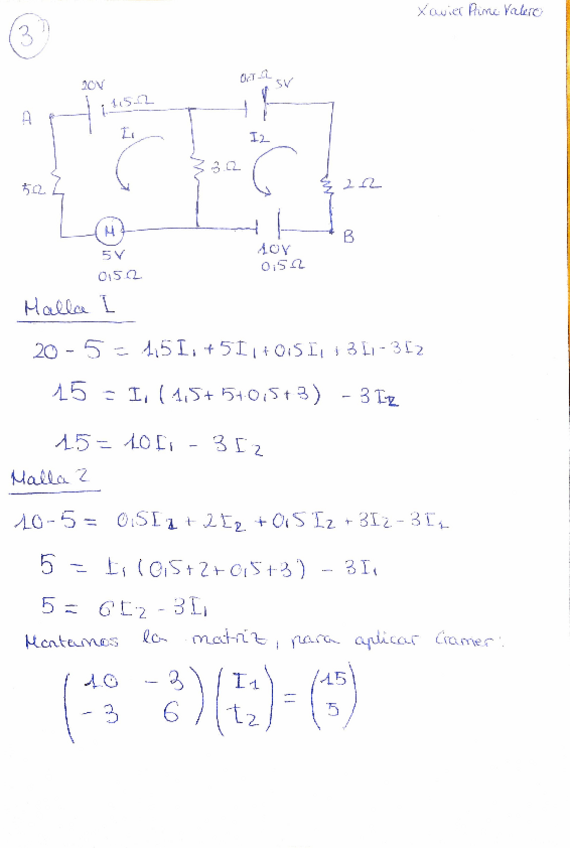 Xavier
3
20V
1,5Ω
0,5Ω
5V
A
I1
I2
5Ω
3Ω
2Ω
M
B
5V
0,5Ω
10V
0,5Ω
Malla 1
20 - 5 = 1,5I1 + 5I1 + 0,5I1 + 3I1 - 3I2
15 = I1 (1,5 + 5 + 0,5 + 3) - 3I2
15 = 10I1 - 3I2
Malla 2
10 - 5 = 0,5I2 + 2I2 + 0,5I2 + 3I2 - 3I1
5 = I1 (0,5 + 2 + 0,5 + 3) - 3I1
5 = 6I2 - 3I1
Montamos la matriz, para aplicar Cramer:
(10 -3) (I1) = (15)
(-3 6) (I2) (5)